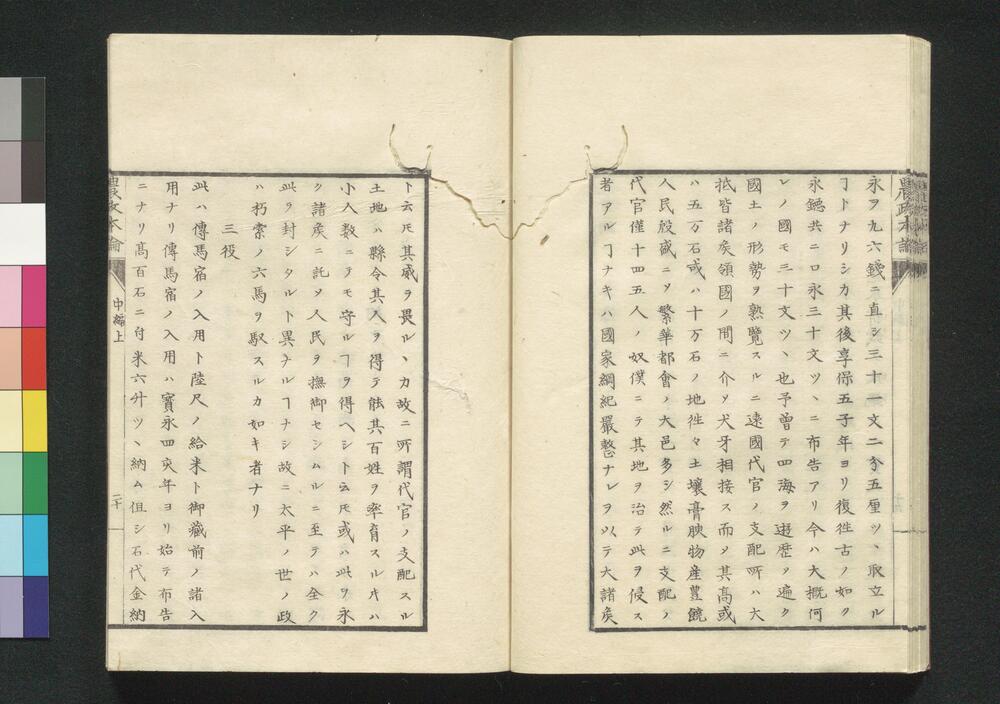 農政本論
永ヲ九六錢ニ直シ三十一文二分五厘ツヽ取立ル
ヿトナリシカ其後享保五子年ヨリ復徃古ノ如ク
永錢共ニ口永三十文ツヽニ布告アリ今ハ大概何
レノ國モ三十文ツヽ也予曾テ四海ヲ遊歴シ遍ク
國土ノ形勢ヲ熟覧スルニ遠國代官ノ支配所ハ大
抵皆諸矦領國ノ間ニ介メ犬牙相接ス而メ其高或
ハ五万石或ハ十万石ノ地徃々土壤膏腴物産豊饒
人民殷盛ニメ繁華都會ノ大邑多シ然ルニ支配ノ
代官僅十四五人ノ奴僕ニテ其地ヲ治テ此ヲ侵ス
者アルヿナキハ國家綱紀嚴整ナレヲ以テ大諸矦
ト云𪜈其威ヲ畏ルヽカ故ニ所謂代官ノ支配スル
土地ハ縣令其人ヲ得テ能其百姓ヲ率育スル片ハ
小人数ニテモ守ルヿヲ得ヘシト云𪜈或ハ此ヲ永
ク諸矦ニ託メ人民ヲ撫御センムルニ至テハ全ク
此ヲ封シタルト異ナルヿナシ故ニ太平ノ世ノ政
ハ朽索ノ六馬ヲ馭スルカ如キ者ナリ
三役
此ハ傳馬宿ノ入用ト陸尺ノ給米ト御藏前ノ諸入
用ナリ傳馬宿ノ入用ハ寳永四亥年ヨリ始テ布告
ニナリ髙百石ニ付米六升ツヽ納ム但シ石代金納
農政本論
中編上
二十